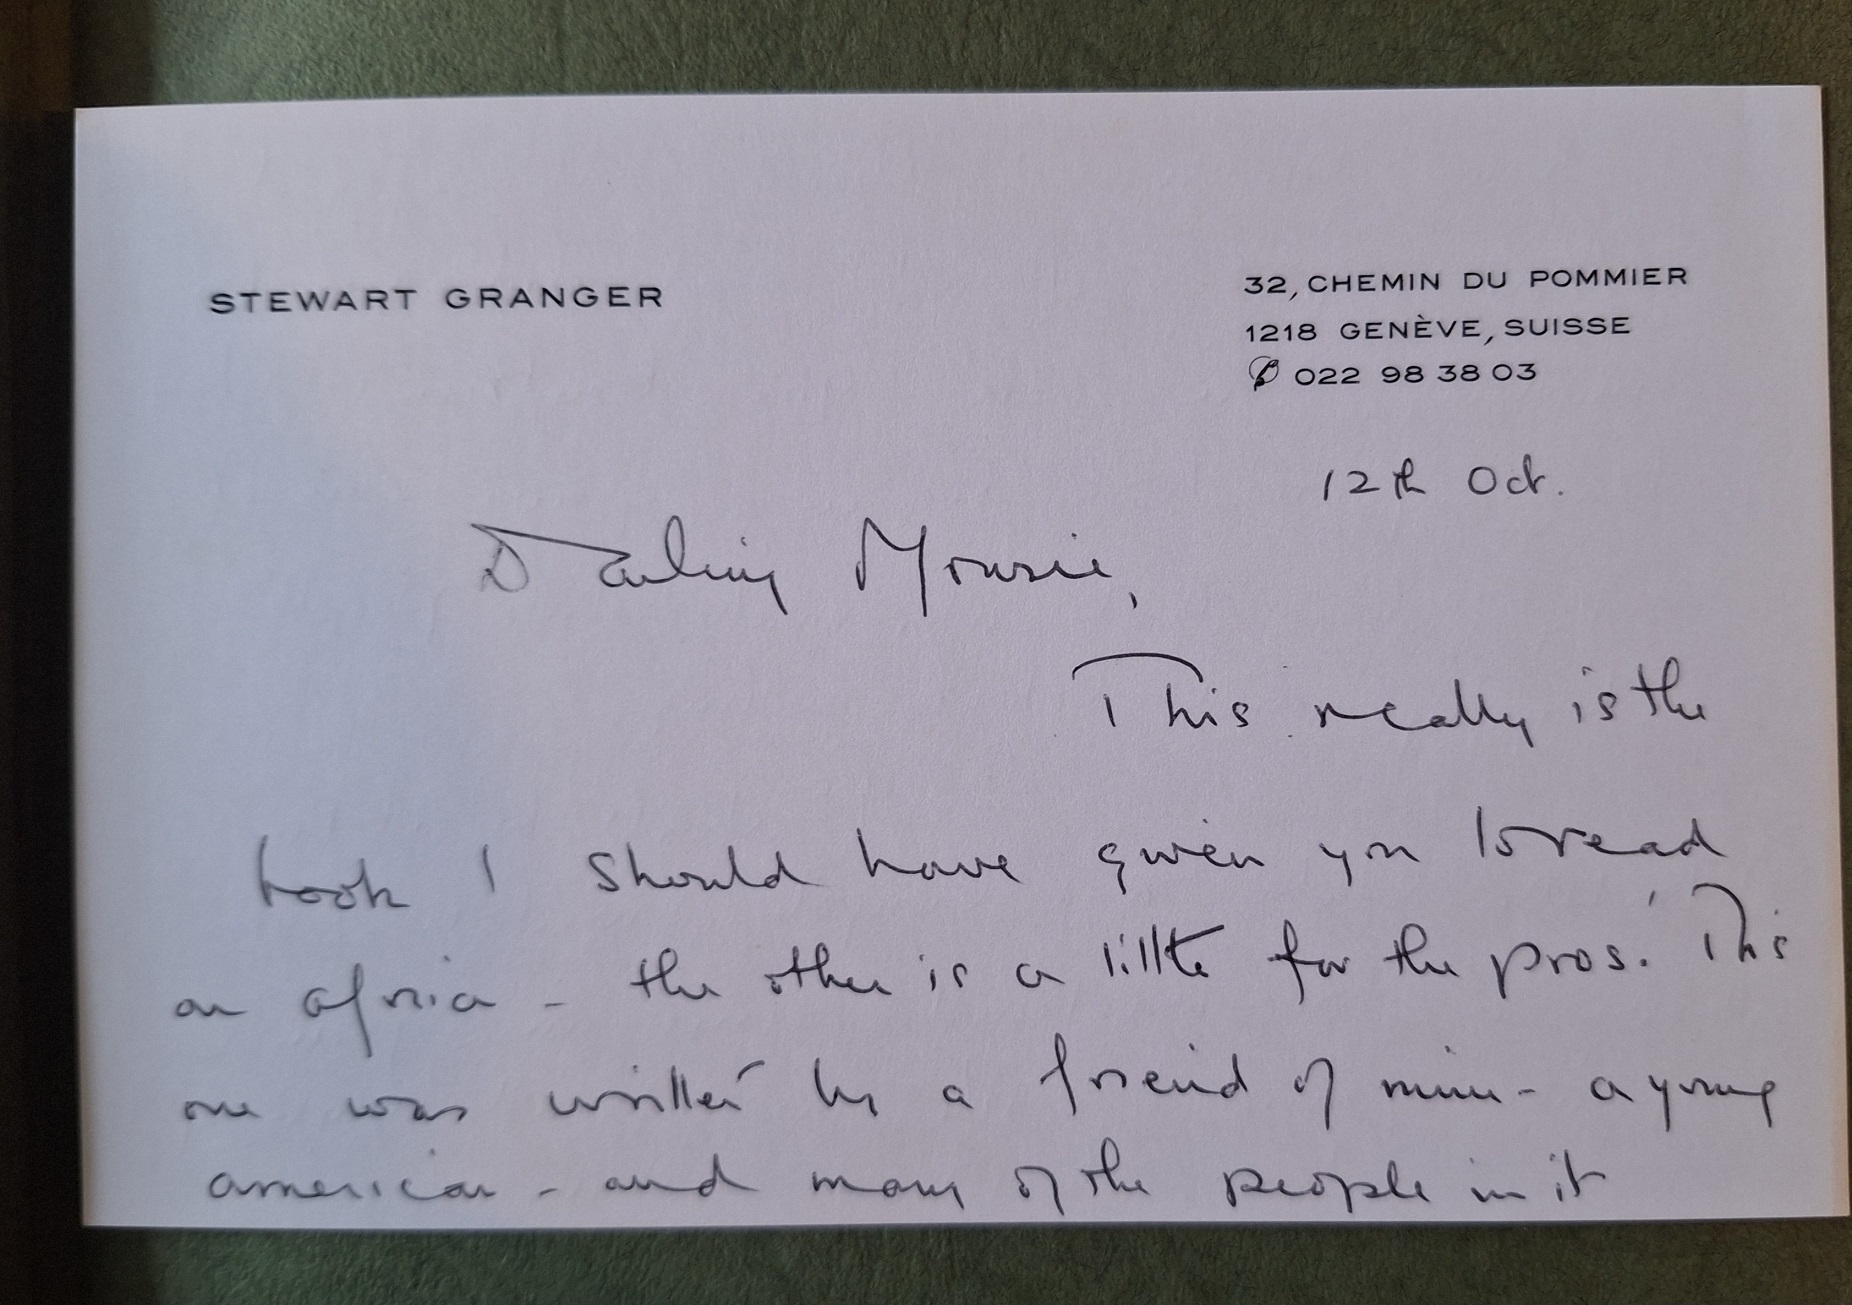 STEWART GRANGER
32, CHEMIN DU POMMIER
1218 GENÈVE, SUISSE
022 98 38 03
12th Oct.
Darling Mousie,
This really is the
book I should have given you to read
on africa - the other is a little for the 'pros.' This
one was written by a friend of mine - a young
american - and many of the people in it